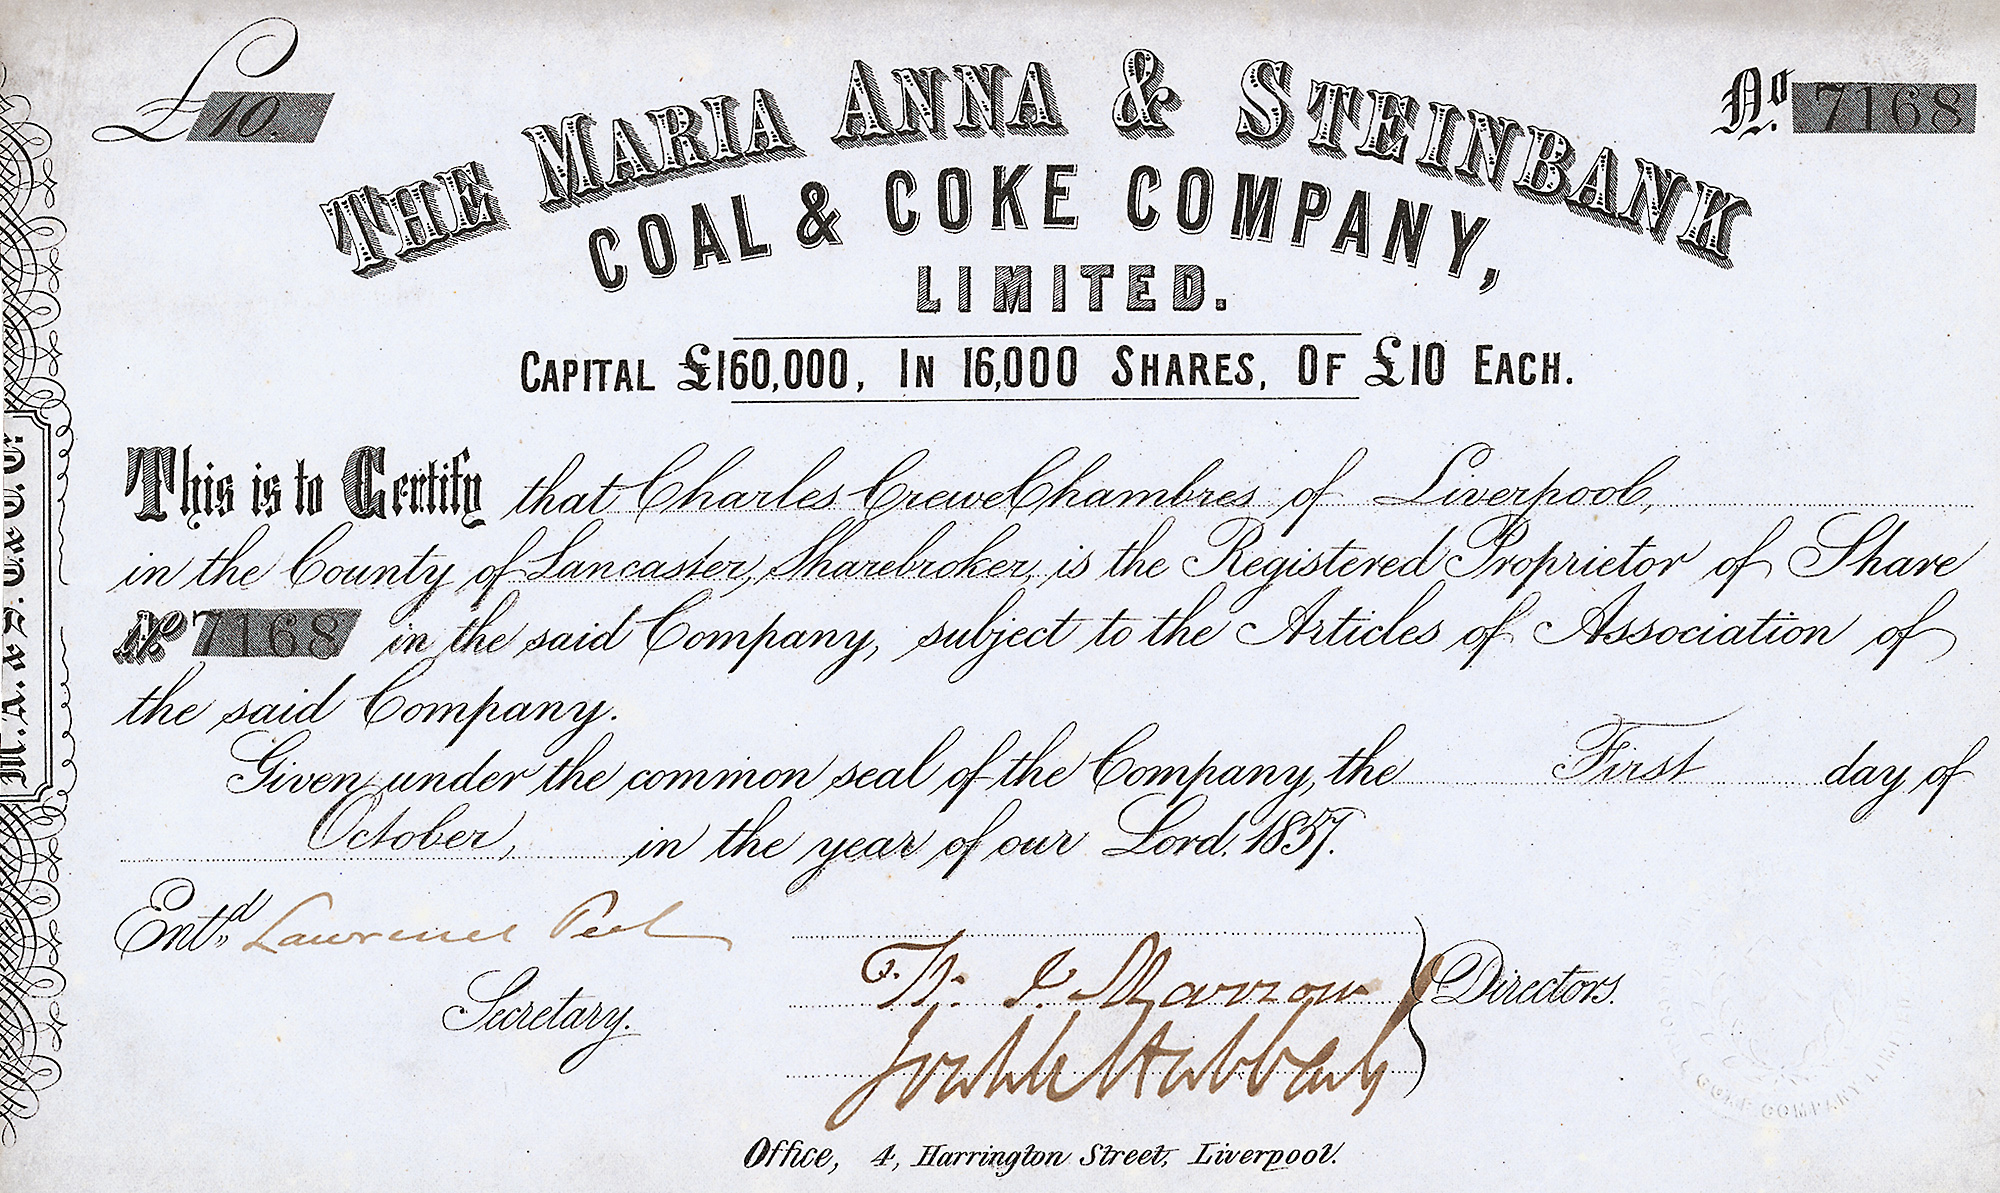 £10.
No. 7168
THE MARIA ANNA & STEINBANK
COAL & COKE COMPANY,
LIMITED.
CAPITAL £160,000, IN 16,000 SHARES, OF £10 EACH.
This is to Certify that Charles Crewe Chambres of Liverpool,
in the County of Lancaster, Sharebroker, is the Registered Proprietor of Share
No. 7168 in the said Company, subject to the Articles of Association of
the said Company.
Given under the common seal of the Company, the First day of
October, in the year of our Lord, 1857.
Entd. Lawrence Peel
Secretary.
W. J. Marrow
Directors.
Office, 4, Harrington Street, Liverpool.
M. A. & S. C. & C. C.º
COKE COMPANY LIMITED